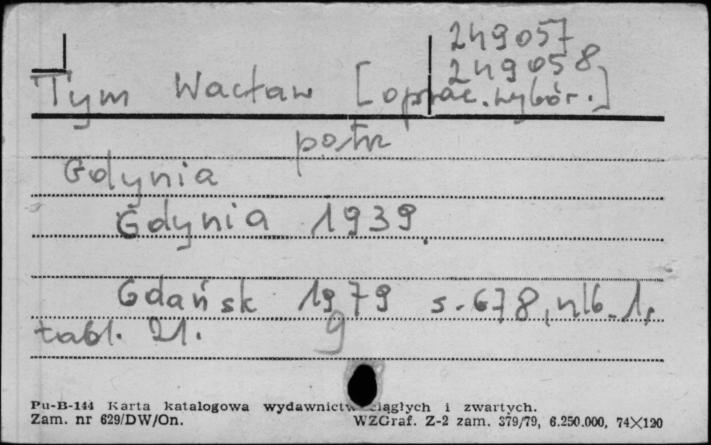 249057
249058
Tym Wacław [oprac. wybór.]
potr
Gdynia
Gdynia 1939.
Gdańsk 1979 s. 678, nlb. 1,
tabl. 21. 9
Pu-B-144 Karta katalogowa wydawnictw ciągłych i zwartych.
Zam. nr 629/DW/On. WZGraf. Z-2 zam. 379/79, 6.250.000, 74×120